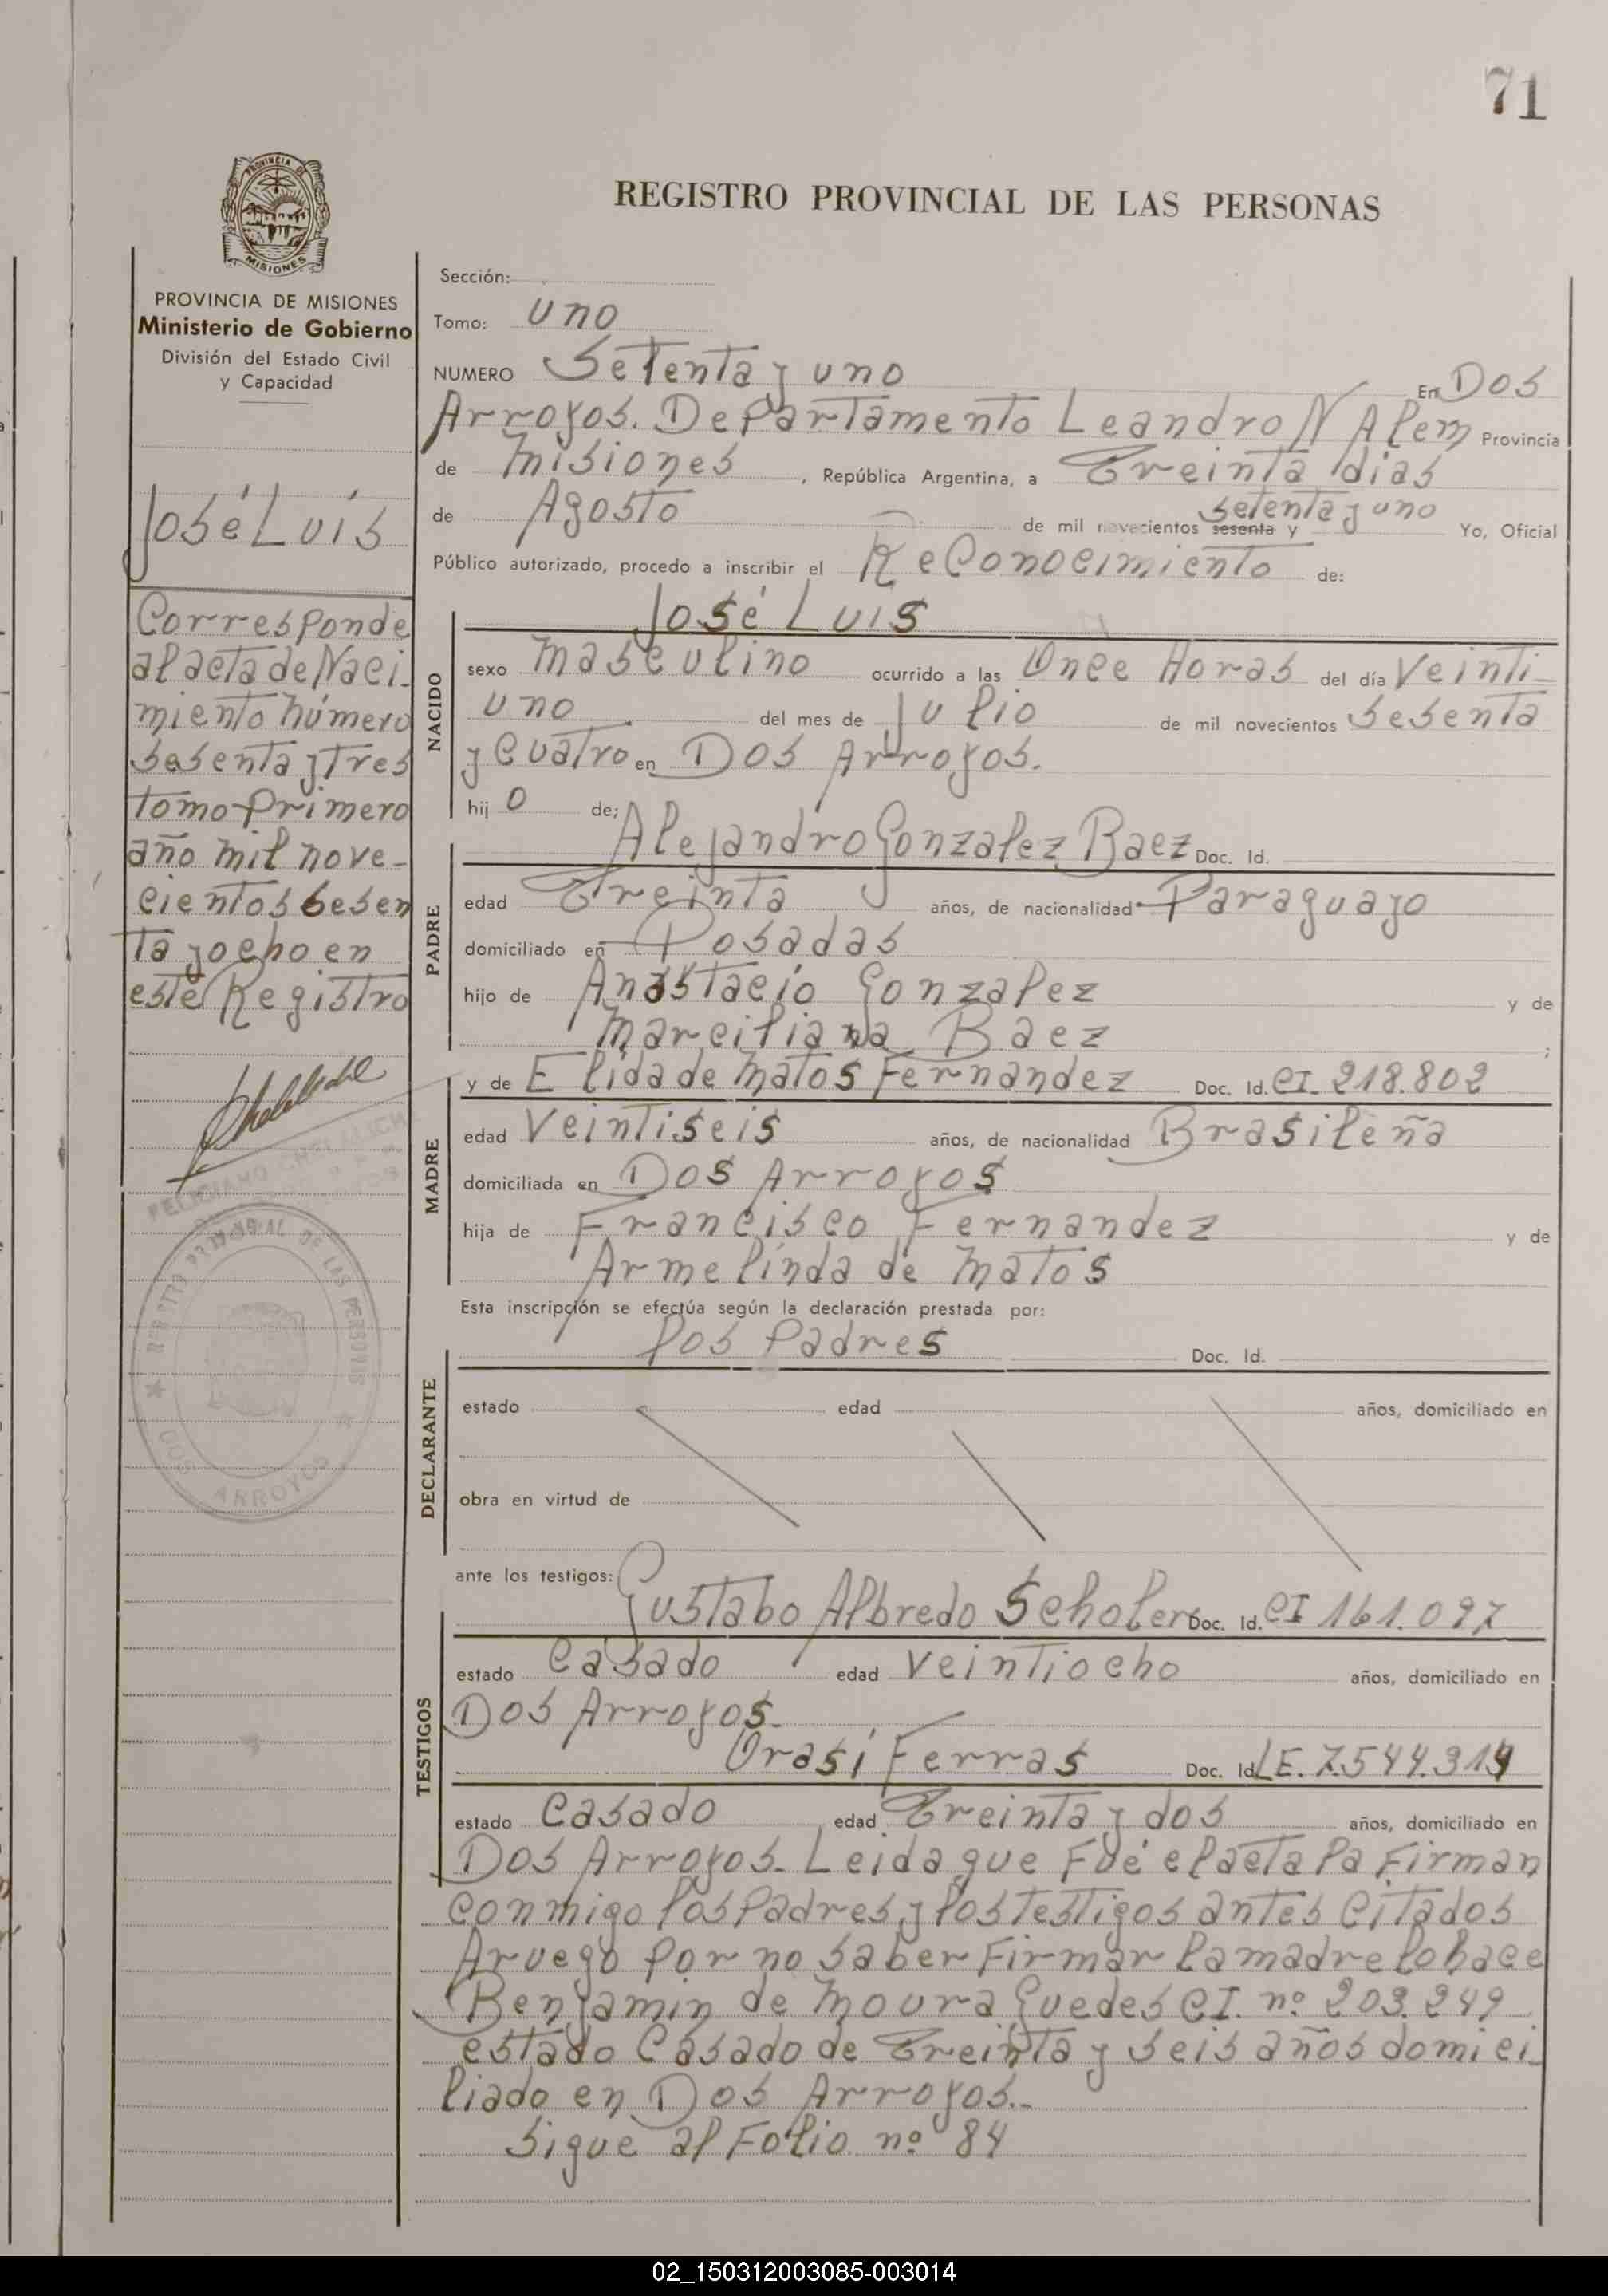 71
PROVINCIA DE
MISIONES
REGISTRO PROVINCIAL DE LAS PERSONAS
PROVINCIA DE MISIONES
Ministerio de Gobierno
División del Estado Civil
y Capacidad
José Luís
Corresponde
al acta de Naci-
miento número
sesenta y tres
tomo primero
año mil nove-
cientos sesen
ta y ocho en
este Registro
REGISTRO PROVINCIAL DE LAS PERSONAS
DOS ARROYOS
Sección:
Tomo: uno
NUMERO Setenta y uno En Dos
Arroyos. Departamento Leandro N Alem Provincia
de Misiones, República Argentina, a Treinta días
de Agosto de mil novecientos sesenta y setenta y uno Yo, Oficial
Público autorizado, procedo a inscribir el Reconocimiento de:
José Luis
NACIDO
sexo masculino ocurrido a las Once Horas del día Veinti-
uno del mes de Julio de mil novecientos Sesenta
y Cuatro en Dos Arroyos.
hijo de;
Alejandro Gonzalez Baez Doc. Id.
PADRE
edad Treinta años, de nacionalidad Paraguayo
domiciliado en Posadas
hijo de Anastacio Gonzalez y de
Marciliana Baez ;
y de Elida de Matos Fernandez Doc. Id. CI. 218.802
MADRE
edad Veintiseis años, de nacionalidad Brasileña
domiciliada en Dos Arroyos
hija de Francisco Fernandez y de
Armelinda de Matos
Esta inscripción se efectúa según la declaración prestada por:
los Padres Doc. Id.
DECLARANTE
estado edad años, domiciliado en
obra en virtud de
ante los testigos:
Gustabo Albredo Scholer Doc. Id. CI 161.097
TESTIGOS
estado Casado edad Veintiocho años, domiciliado en
Dos Arroyos.
Orasi Ferras Doc. Id LE. 7.544.314
estado Casado edad Treinta y dos años, domiciliado en
Dos Arroyos. Leida que Fué el acta la Firman
conmigo los Padres y los testigos antes Citados
Aruego por no saber Firmar la madre lo hace
Benjamin de Moura Guedes CI. nº 203.249
estado Casado de Treinta y seis años domici-
liado en Dos Arroyos.-
Sigue al Folio nº 84
02_150312003085-003014